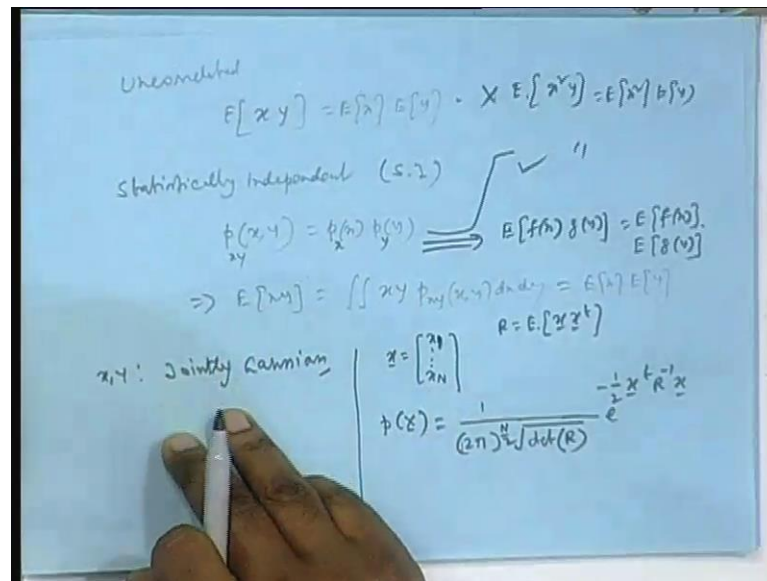 Uncorrelated
E[xy] = E[x] E[y] · X E.[x²y] = E[x²] E[y]
Statistically Independent (S.I) ✓ "
p_xy(x,y) = p_x(x) p_y(y) ⟹ E[f(x) g(y)] = E[f(x)].
E[g(y)]
=> E[xy] = ∬ xy p_xy(x,y) dx dy = E[x] E[y]
R = E.[x x^t]
x,y : Jointly Gaussian
x = [x1 ⋮ xN]
p(x) = 1 / (2π)^(N/2) √det(R) e^(-1/2 x^t R^-1 x)